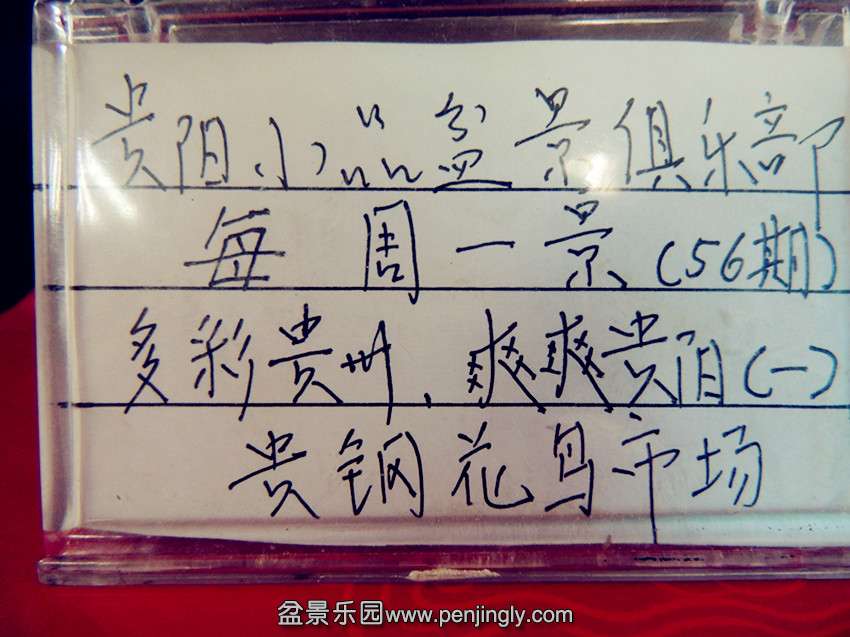 贵阳小品盆景俱乐部
每周一景(56期)
多彩贵州、爽爽贵阳(一)
贵钢花鸟市场
盆景乐园www.penjingly.com